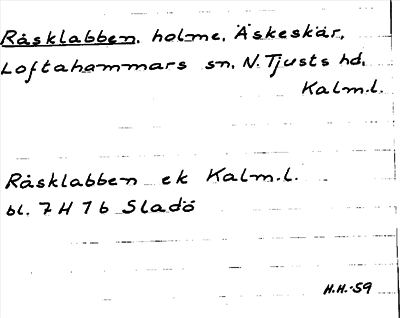 Råsklabben, holme, Äskeskär,
Loftahammars sn, N. Tjusts hd,
Kalm.l.
Råsklabben ek Kalm.l.
bl. 7 H 7 b Sladö
H.H.-59